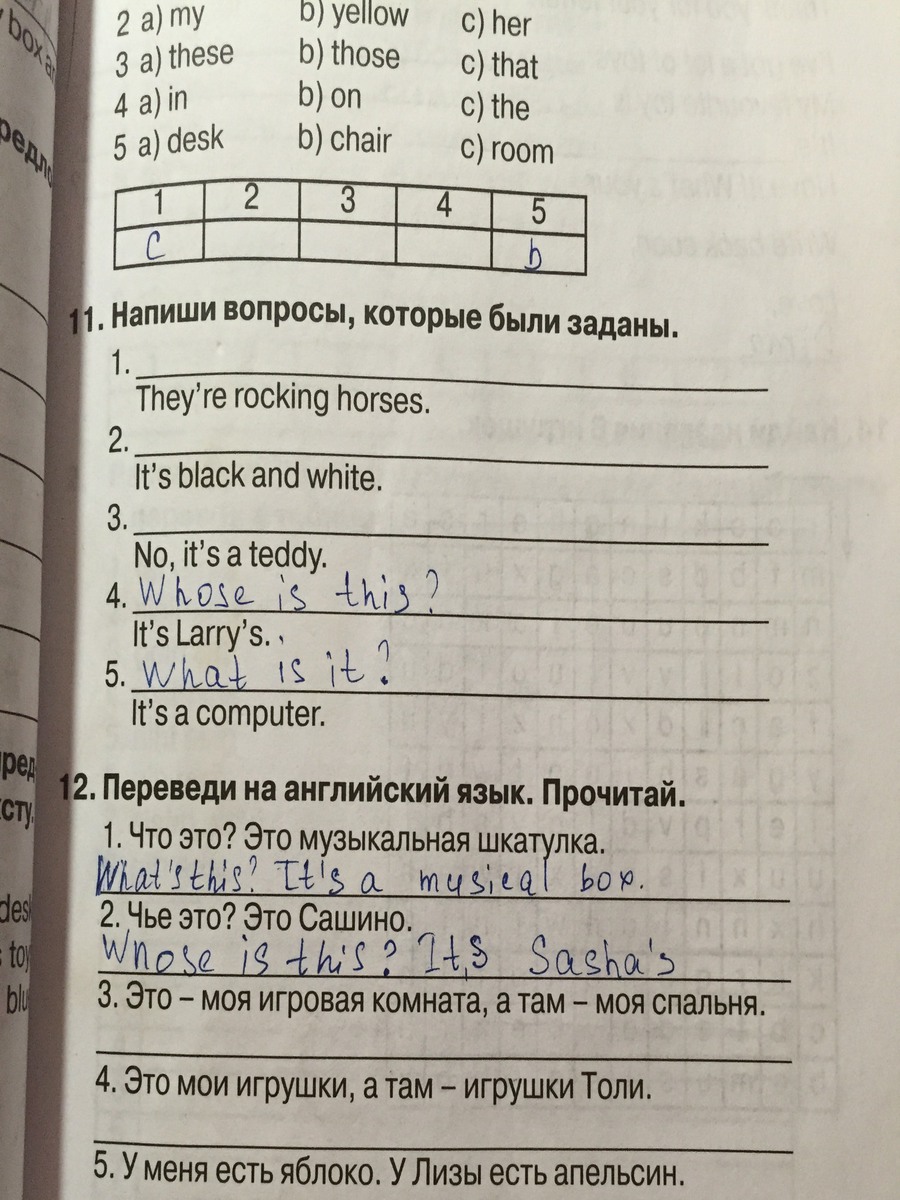 2 a) my b) yellow c) her
3 a) these b) those c) that
4 a) in b) on c) the
5 a) desk b) chair c) room
1 2 3 4 5
c b
11. Напиши вопросы, которые были заданы.
1.
They're rocking horses.
2.
It's black and white.
3.
No, it's a teddy.
4. Whose is this?
It's Larry's.
5. What is it?
It's a computer.
12. Переведи на английский язык. Прочитай.
1. Что это? Это музыкальная шкатулка.
What's this? It's a musical box.
2. Чье это? Это Сашино.
Whose is this? It,s Sasha's
3. Это – моя игровая комната, а там – моя спальня.
4. Это мои игрушки, а там – игрушки Толи.
5. У меня есть яблоко. У Лизы есть апельсин.